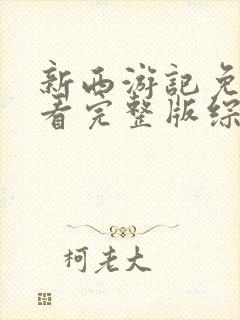 新西游记免
看完整版综
柯老大